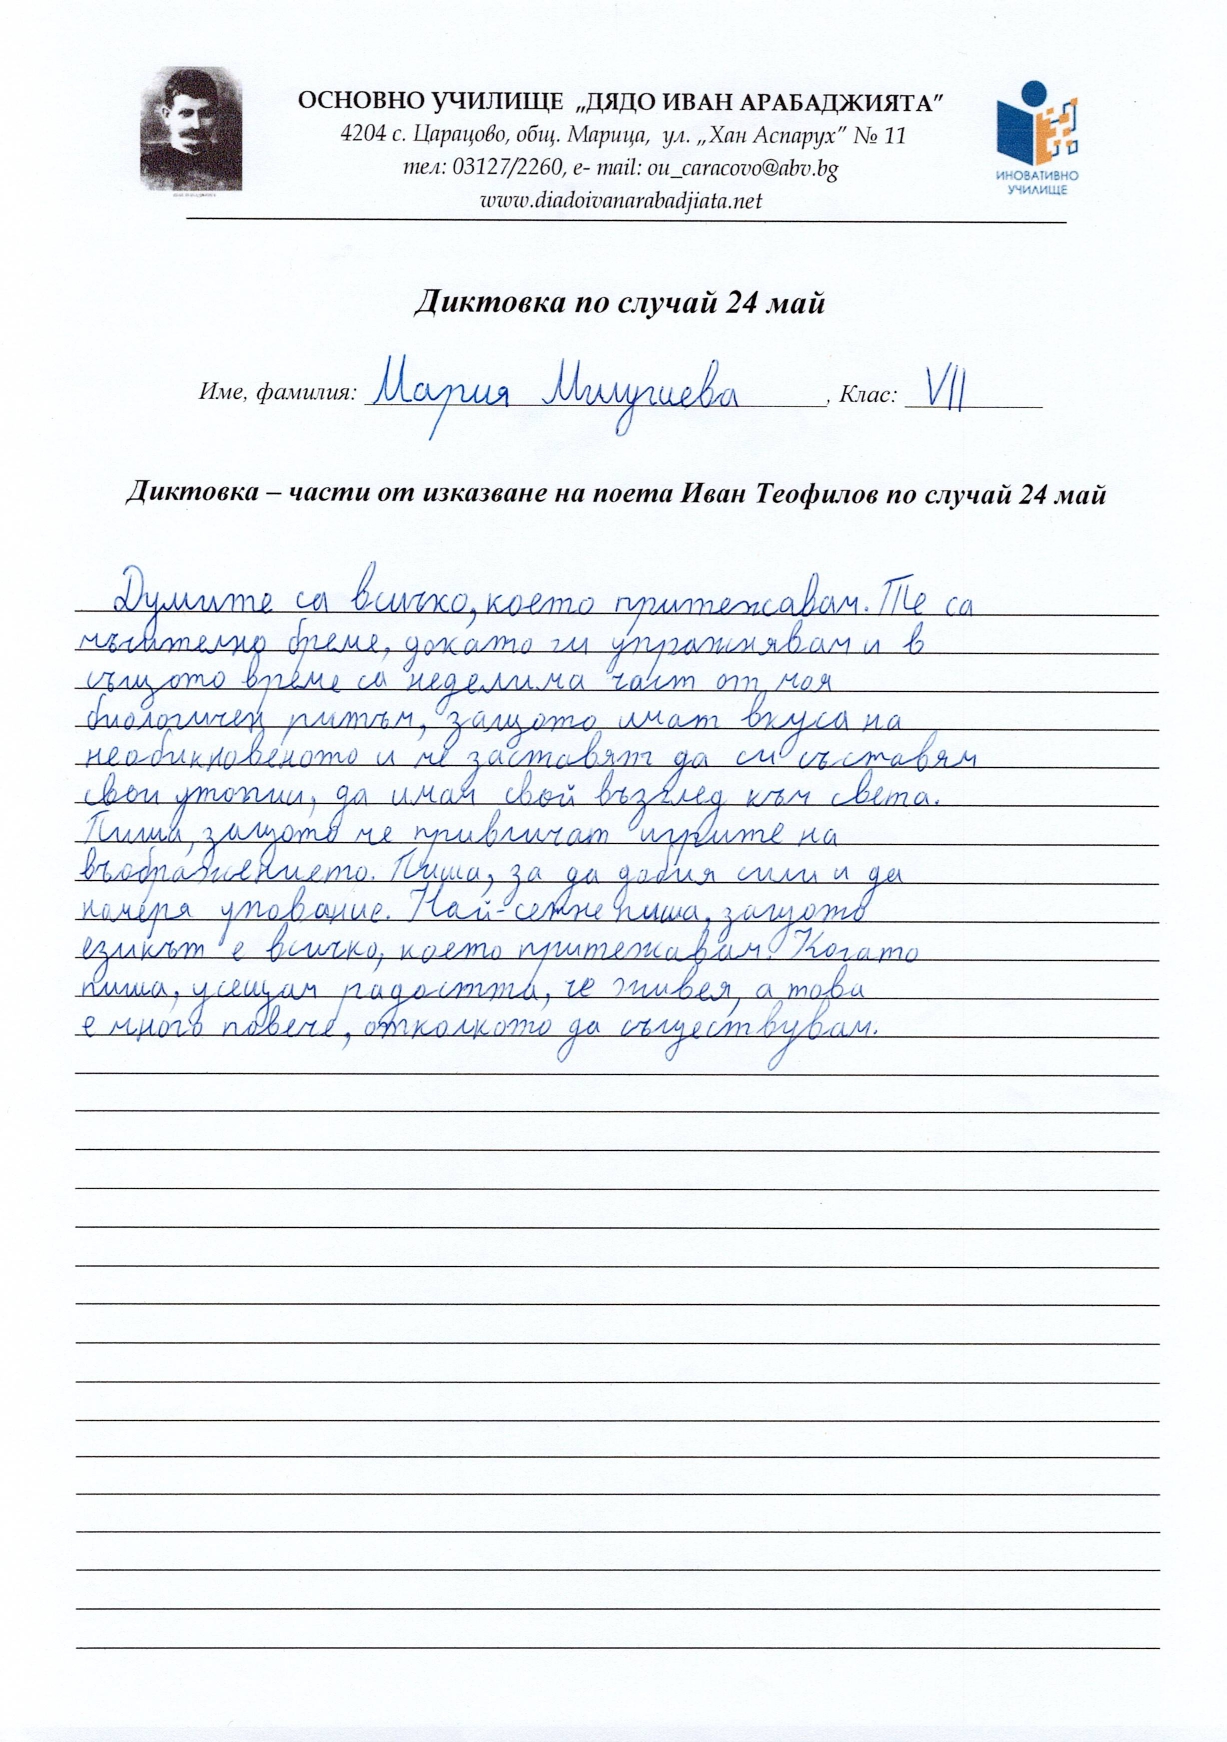 ОСНОВНО УЧИЛИЩЕ „ДЯДО ИВАН АРАБАДЖИЯТА”
4204 с. Царацово, общ. Марица, ул. „Хан Аспарух” № 11
тел: 03127/2260, e- mail: ou_caracovo@abv.bg
www.diadoivanarabadjiata.net
ИНОВАТИВНО
УЧИЛИЩЕ
Диктовка по случай 24 май
Име, фамилия: Мария Милушева, Клас: VII
Диктовка – части от изказване на поета Иван Теофилов по случай 24 май
Думите са всичко, което притежавам. Те са
мъчително бреме, докато ги упражнявам и в
същото време са неделима част от моя
биологичен ритъм, защото имат вкуса на
необикновеното и ме заставят да си съставям
свои утопии, да имам свой възглед към света.
Пиша, защото ме привличат игрите на
въображението. Пиша, за да добия сили и да
намеря упование. Най-сетне пиша, защото
езикът е всичко, което притежавам. Когато
пиша, усещам радостта, че живея, а това
е много повече, отколкото да съществувам.